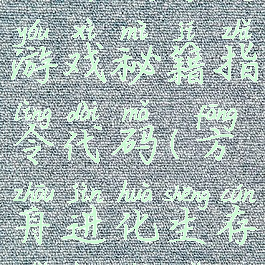 yóu xì mì jí zhǐ
游戏秘籍指
lìng dài mǎ fāng
令代码(方
zhōu jìn huà shēng cún
舟进化生存